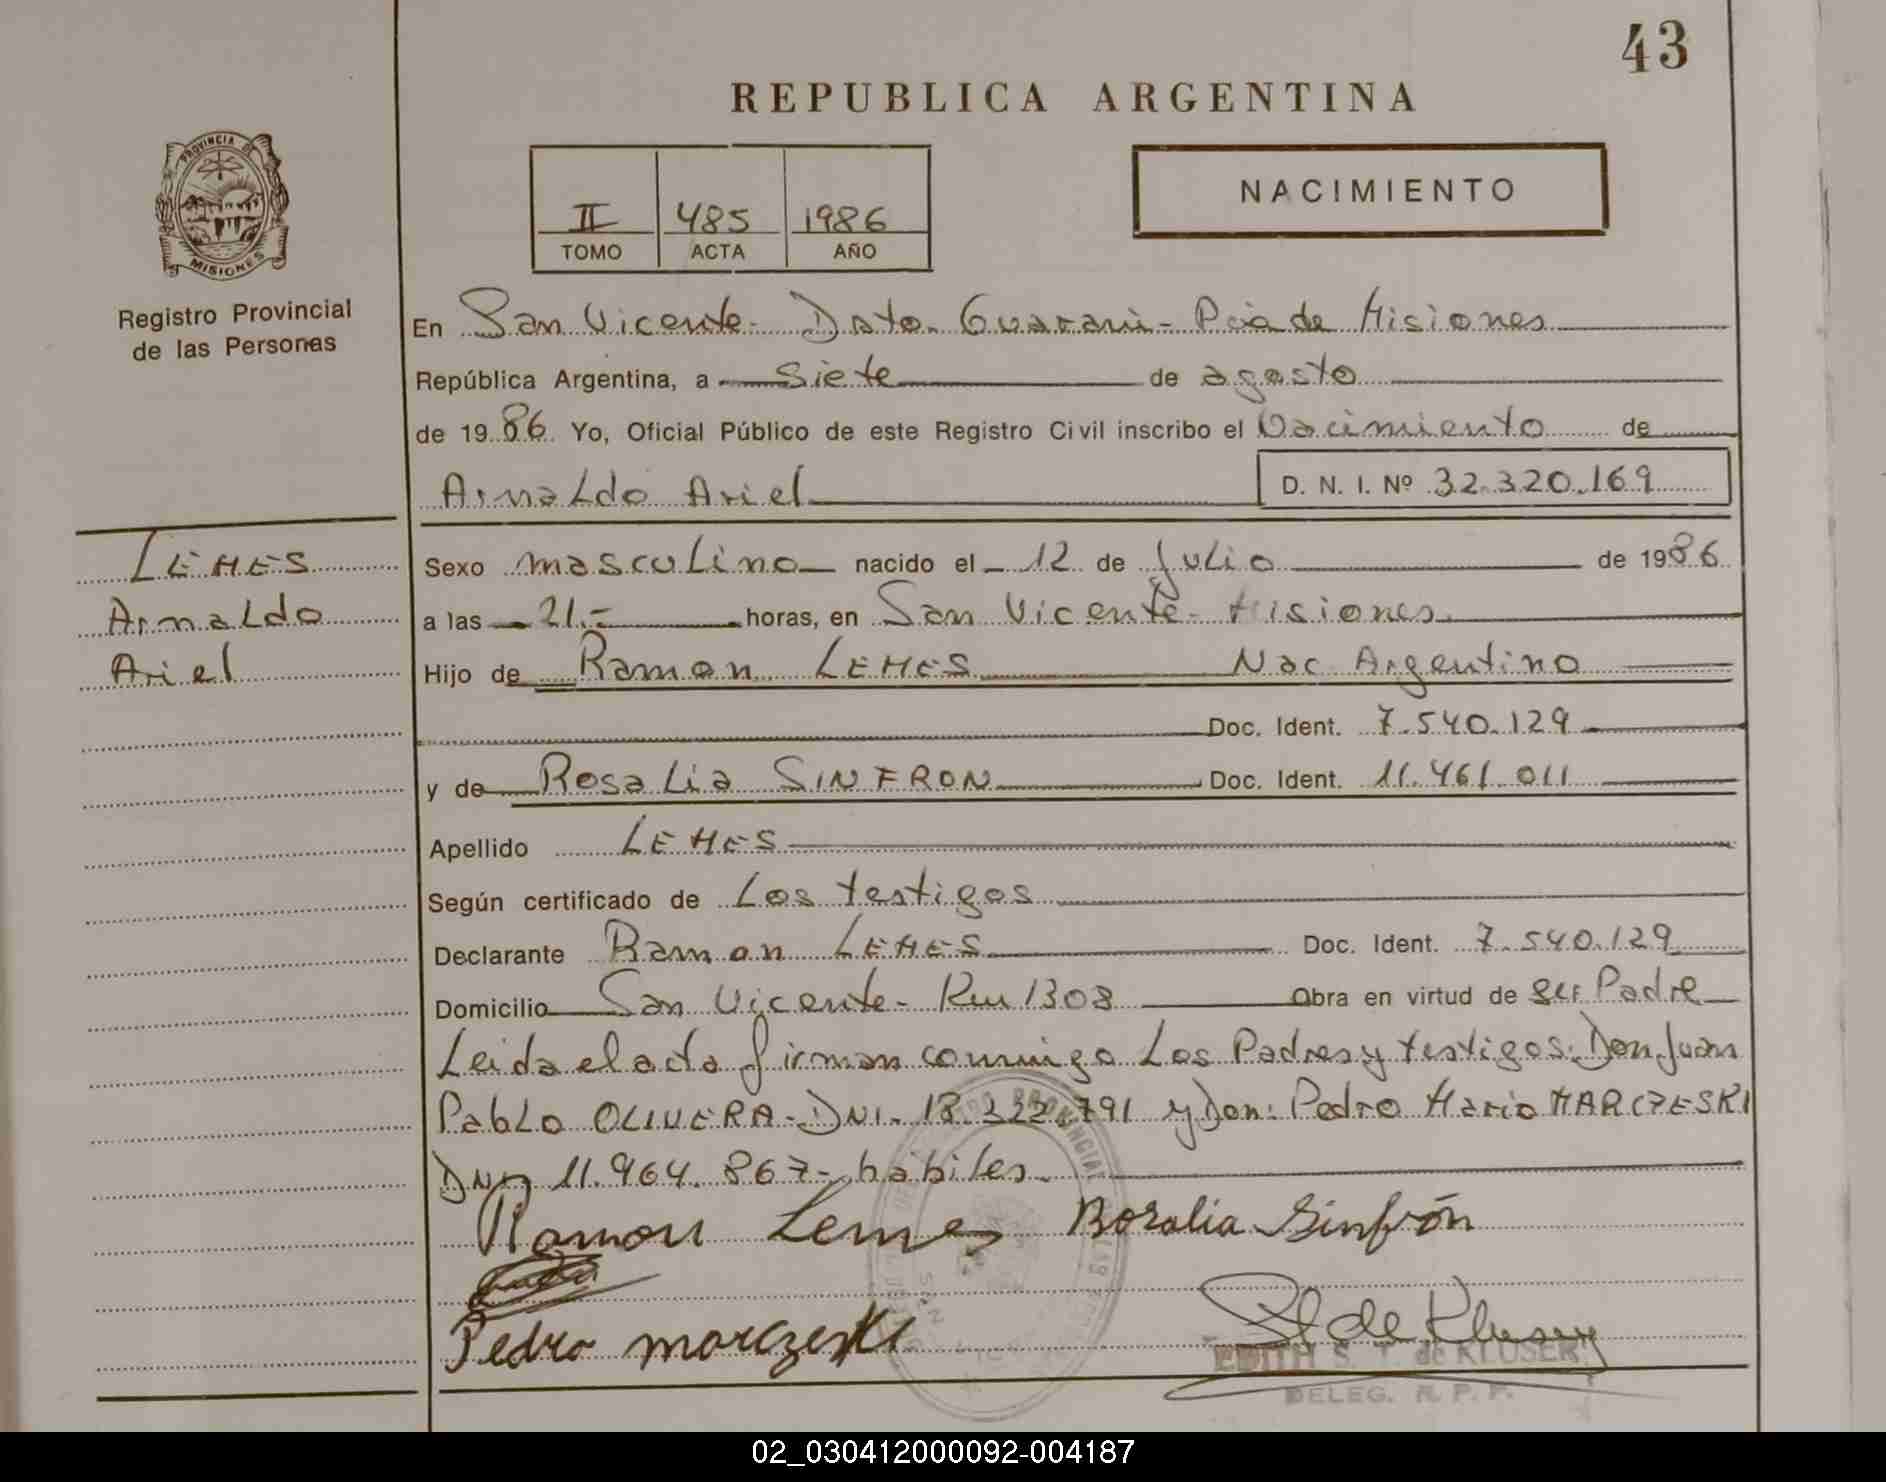 43
REPUBLICA ARGENTINA
PROVINCIA DE
MISIONES
II 485 1986
TOMO ACTA AÑO
NACIMIENTO
Registro Provincial
de las Personas
En San Vicente - Dpto. Guarani - Pcia de Misiones
República Argentina, a siete de agosto
de 1986 Yo, Oficial Público de este Registro Civil inscribo el Nacimiento de
Arnaldo Ariel D. N. I. Nº 32.320.169
LEMES
Arnaldo
Ariel
Sexo masculino nacido el 12 de Julio de 1986
a las 21.- horas, en San Vicente - Misiones
Hijo de Ramon LEMES Nac Argentino
Doc. Ident. 7.540.129
y de Rosalia SINFRON Doc. Ident. 11.461.011
Apellido LEMES
Según certificado de Los testigos
Declarante Ramon LEMES Doc. Ident. 7.540.129
Domicilio San Vicente - Km 1308 Obra en virtud de ser Padre
Leida el acta firman conmigo Los Padres y testigos: Don Juan
Pablo OLIVERA - DNI - 18.322.791 y Don: Pedro Mario MARCZESKI
DNI 11.964.867 - habiles.
Ramon Lemes Rosalia Sinfrón
Pedro Marczeski
EDITH S. T. de KLUSER
DELEG. R. P. P.
02_030412000092-004187